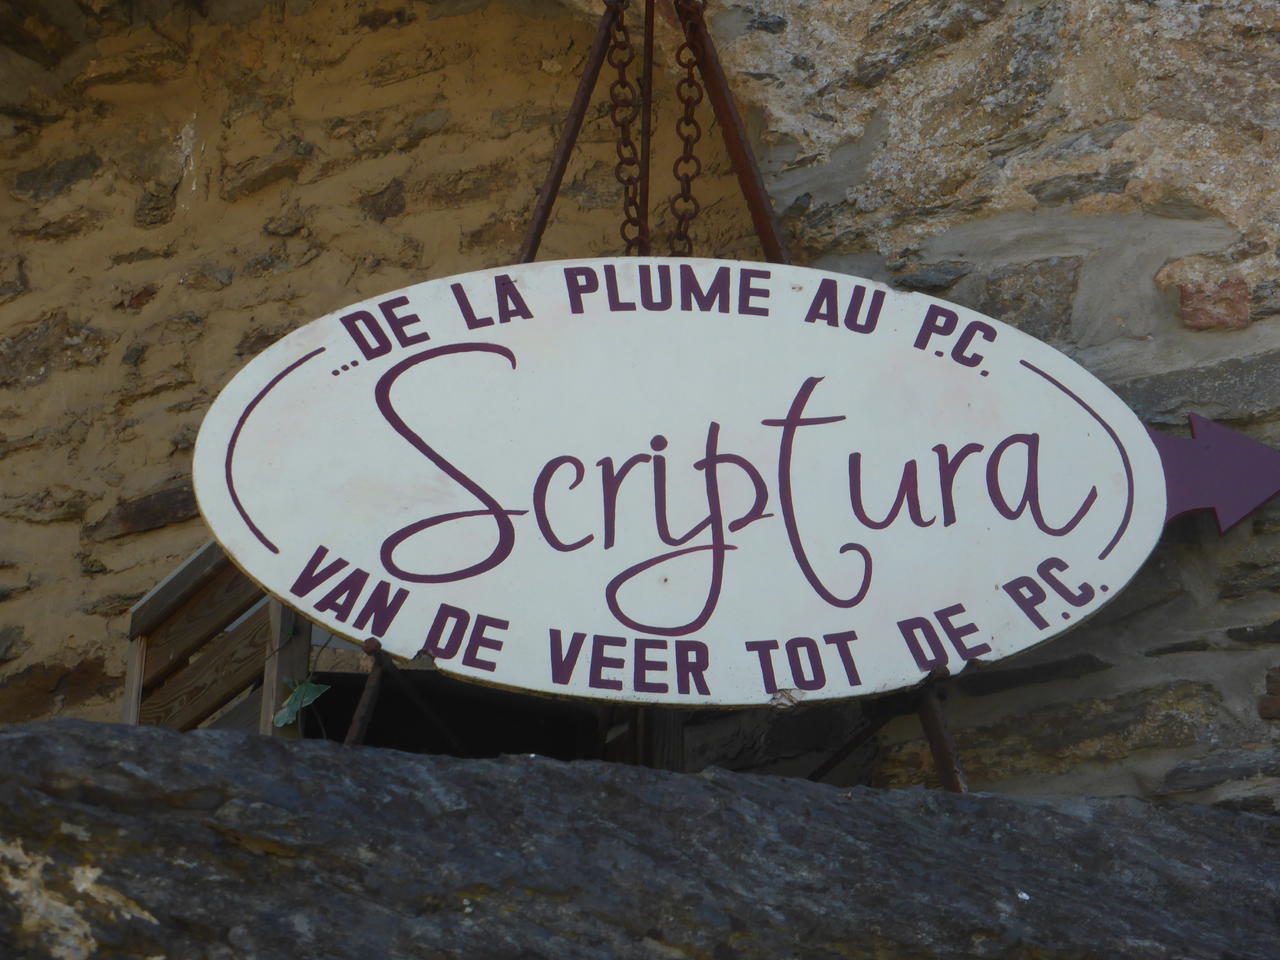 ...DE LA PLUME AU P.C.
Scriptura
VAN DE VEER TOT DE P.C.